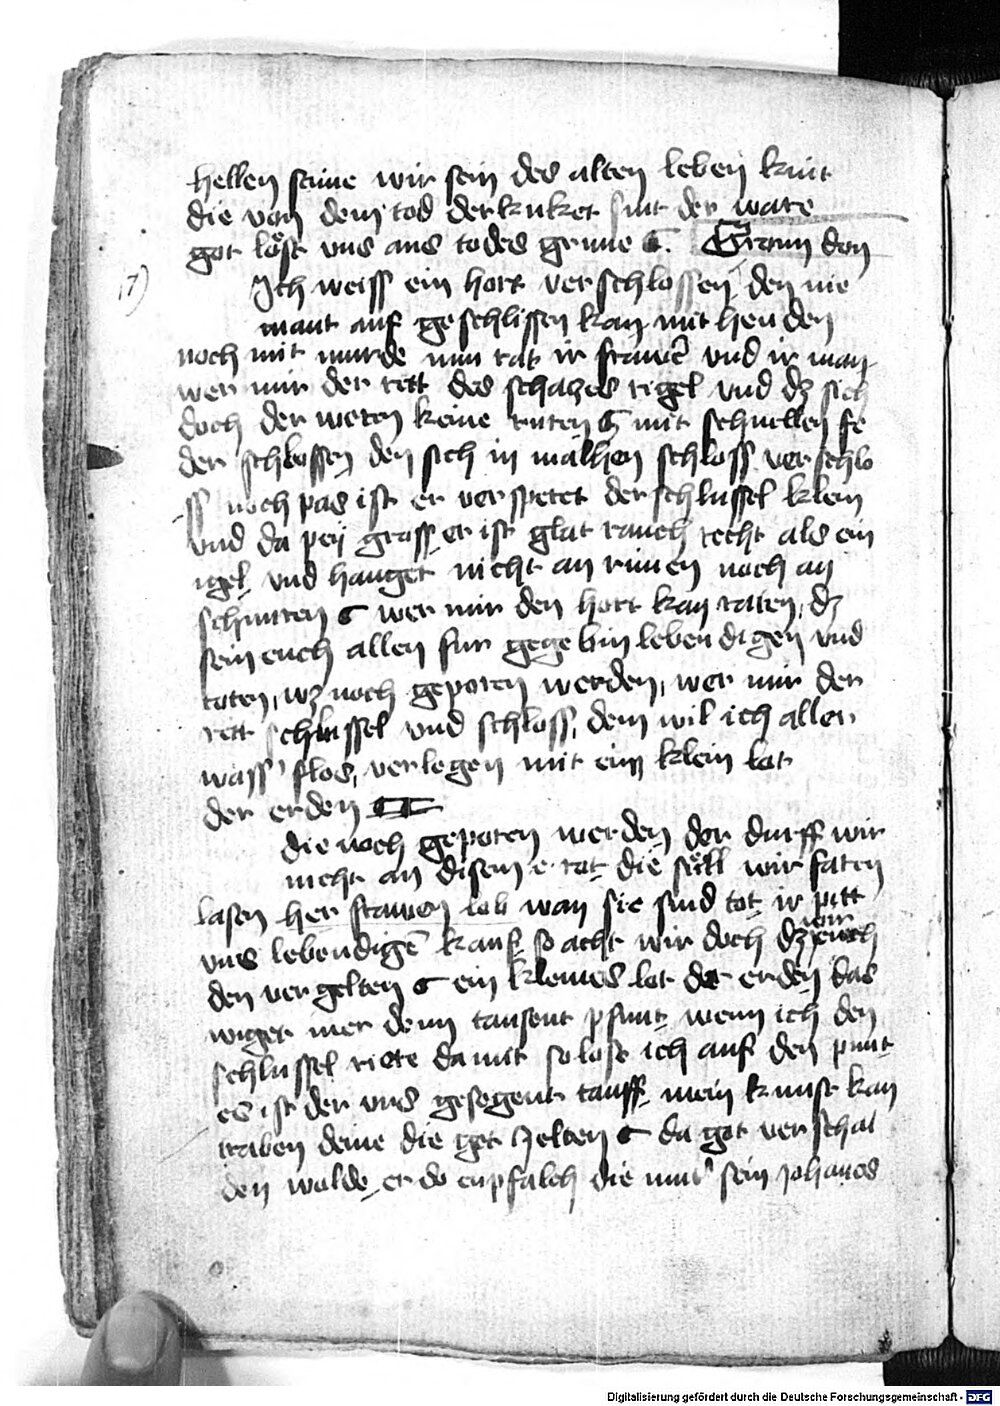 hellen stime wir sein des alten leben kint
die von dem tod derkuket sint der ware
got löst uns aus todes grime G. Gronn don
17)
Ich weiss ein hort verschlossen, den nie
mant auf geschlissen kan mit henden
noch mit munde nun rat ir frawē und ir man
wer mir der rett des schatzes rigel und dz sich
doch der weren keine ruren G mit schnellen fe
der schlossen den sich in malhen schloss verschlo
ss noch pas ist er verspetet der schlussel klein
und da pey gross, er ist glat rauch recht als ein
igel, und hanget nicht an rimen noch an
schnuren G wer mir den hort kan raten, dz
sein euch allen fur gegebin lebendigen und
toten, wz noch geporen werden, wer mir der
rett schlussel und schloss, dem wil ich aller
wass' flos, verlegen mit eim klein lot
der erden
die noch geporen werden der durff wir
nicht an disem e rat, die süll wir faren
lasen her frawen lob wan sie sind tot, ir pitt
uns lebendigē kauf, so acht wir doch dz wir euch
den vergelten G ein kleines lot der erden das
wiget mer denn tausent pfunt, wenn ich den
schlussel riete damit so lose ich auf den punt
es ist der uns gesegent tauff, mein kunst kan
traben deine die get zelten G da got verschal
den wolde, er do enpfalch die mut' sein Johanes
Digitalisierung gefördert durch die Deutsche Forschungsgemeinschaft - DFG